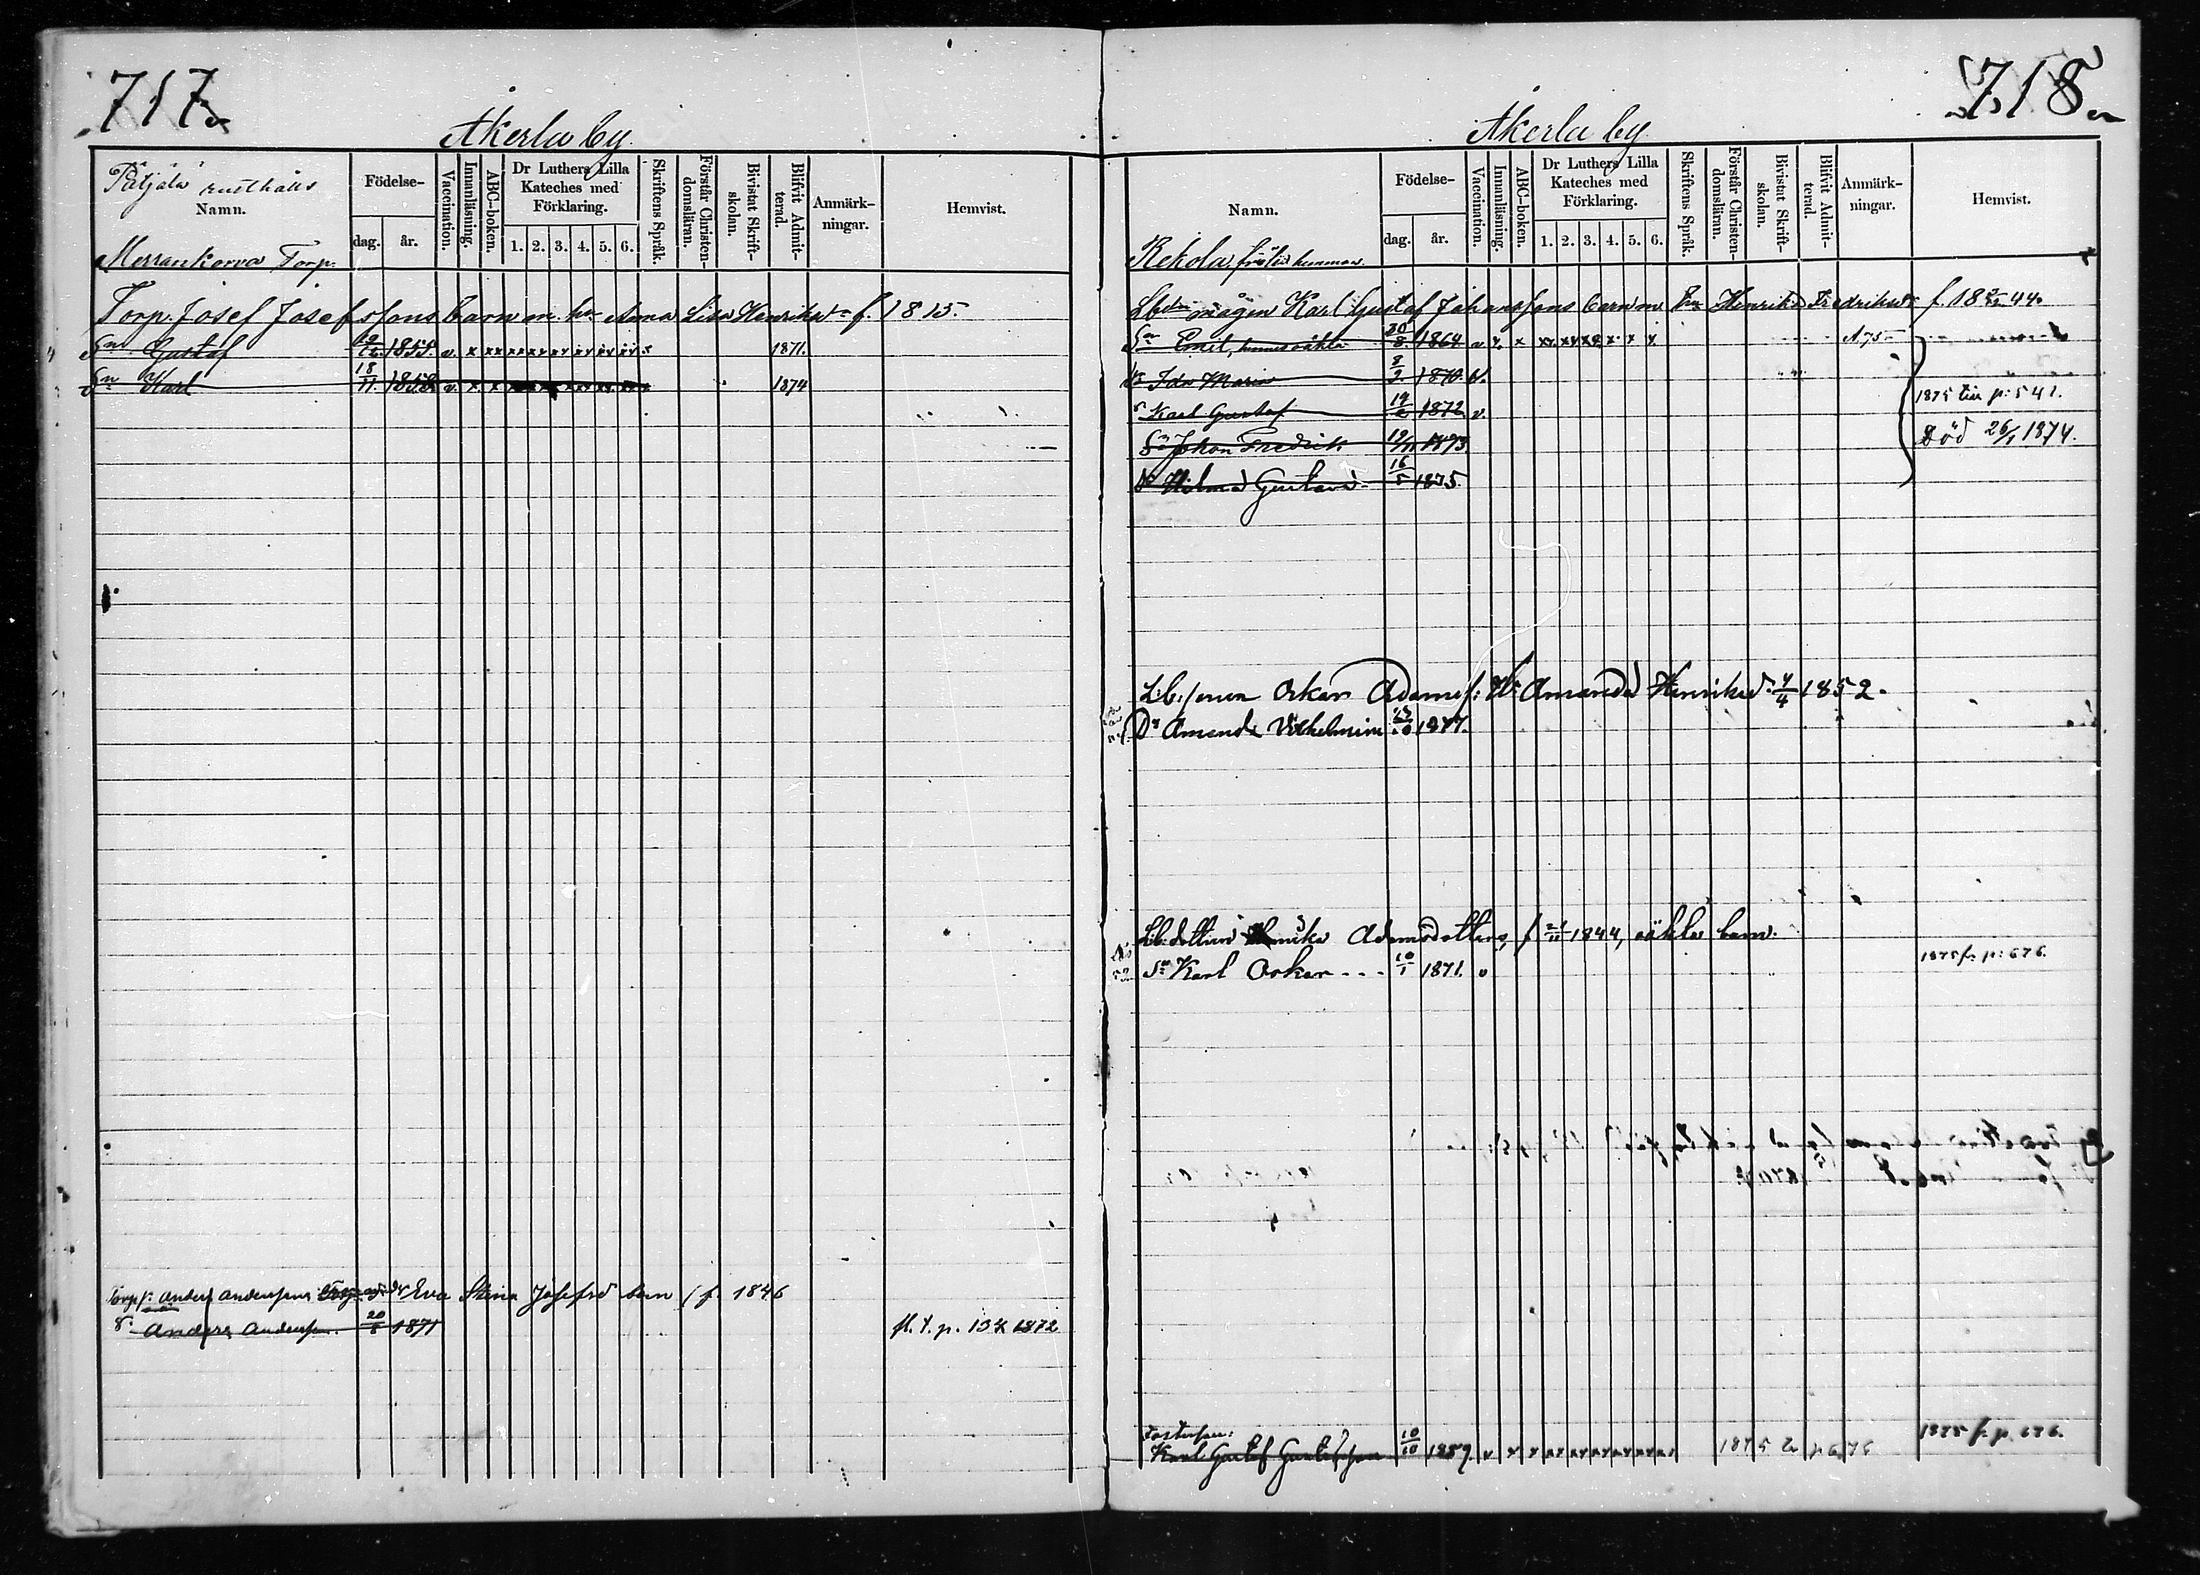 717.
Åkerla by.
Pätjälä rusthålls
Namn.
Födelse-
dag. år.
Vaccination.
Innanläsning.
ABC-boken.
Dr Luthers Lilla Kateches med Förklaring.
1. 2. 3. 4. 5. 6.
Skriftens Språk.
Förstår Christendomsläran.
Bivistat Skriftskolan.
Blifvit Admitterad.
Anmärkningar.
Hemvist.
Merrankorva Torp.
Torp. Josef Josefssons barn m. h. Anna Lisa Henriksdr f. 1815.
Sn Gustaf 1855. v. x xx xx xx xx xx xx 1871.
Sn Karl 18/11 1858 v. x x 1874
Torp: Anders Anderssons Eva Stina Josefsd barn f. 1846
S. Anders Andersson 20/8 1871 fl. t. p. 1872
718.
Åkerla by
Namn.
Födelse-
dag. år.
Vaccination.
Innanläsning.
ABC-boken.
Dr Luthers Lilla Kateches med Förklaring.
1. 2. 3. 4. 5. 6.
Skriftens Språk.
Förstår Christendomsläran.
Bivistat Skriftskolan.
Blifvit Admitterad.
Anmärkningar.
Hemvist.
Rekola frälse hemman.
mågen Karl Gustaf Johanssons barn m Henrika Fredriksdr f. 44.
Sn Emil, hennes oäkta 30/8 1864 v x. x A 75
Dr Ida Maria 8/2 1870 v.
S Karl Gustaf 19/2 1872 v. 1875 till p: 541.
Sn Johan Fredrik 19/11 1873 Död 26/1 1874.
Dr Hilma Gustava 16/5 1875.
Lb: sonen Oskar Adamss: H: Amanda Henriksd. 4/4 1852.
Dr Amanda Vilhelmina 1877.
Lb: dottern Adamsdotters, f 1844, oäkta barn.
Sn Karl Oskar - - - 10/1 1871. v 1875 fr. p: 676.
Fosterson:
Karl Gustaf Gustafsson 10/10 1859. v x x xx xx xx xx xx 1875 fr. p. 676.